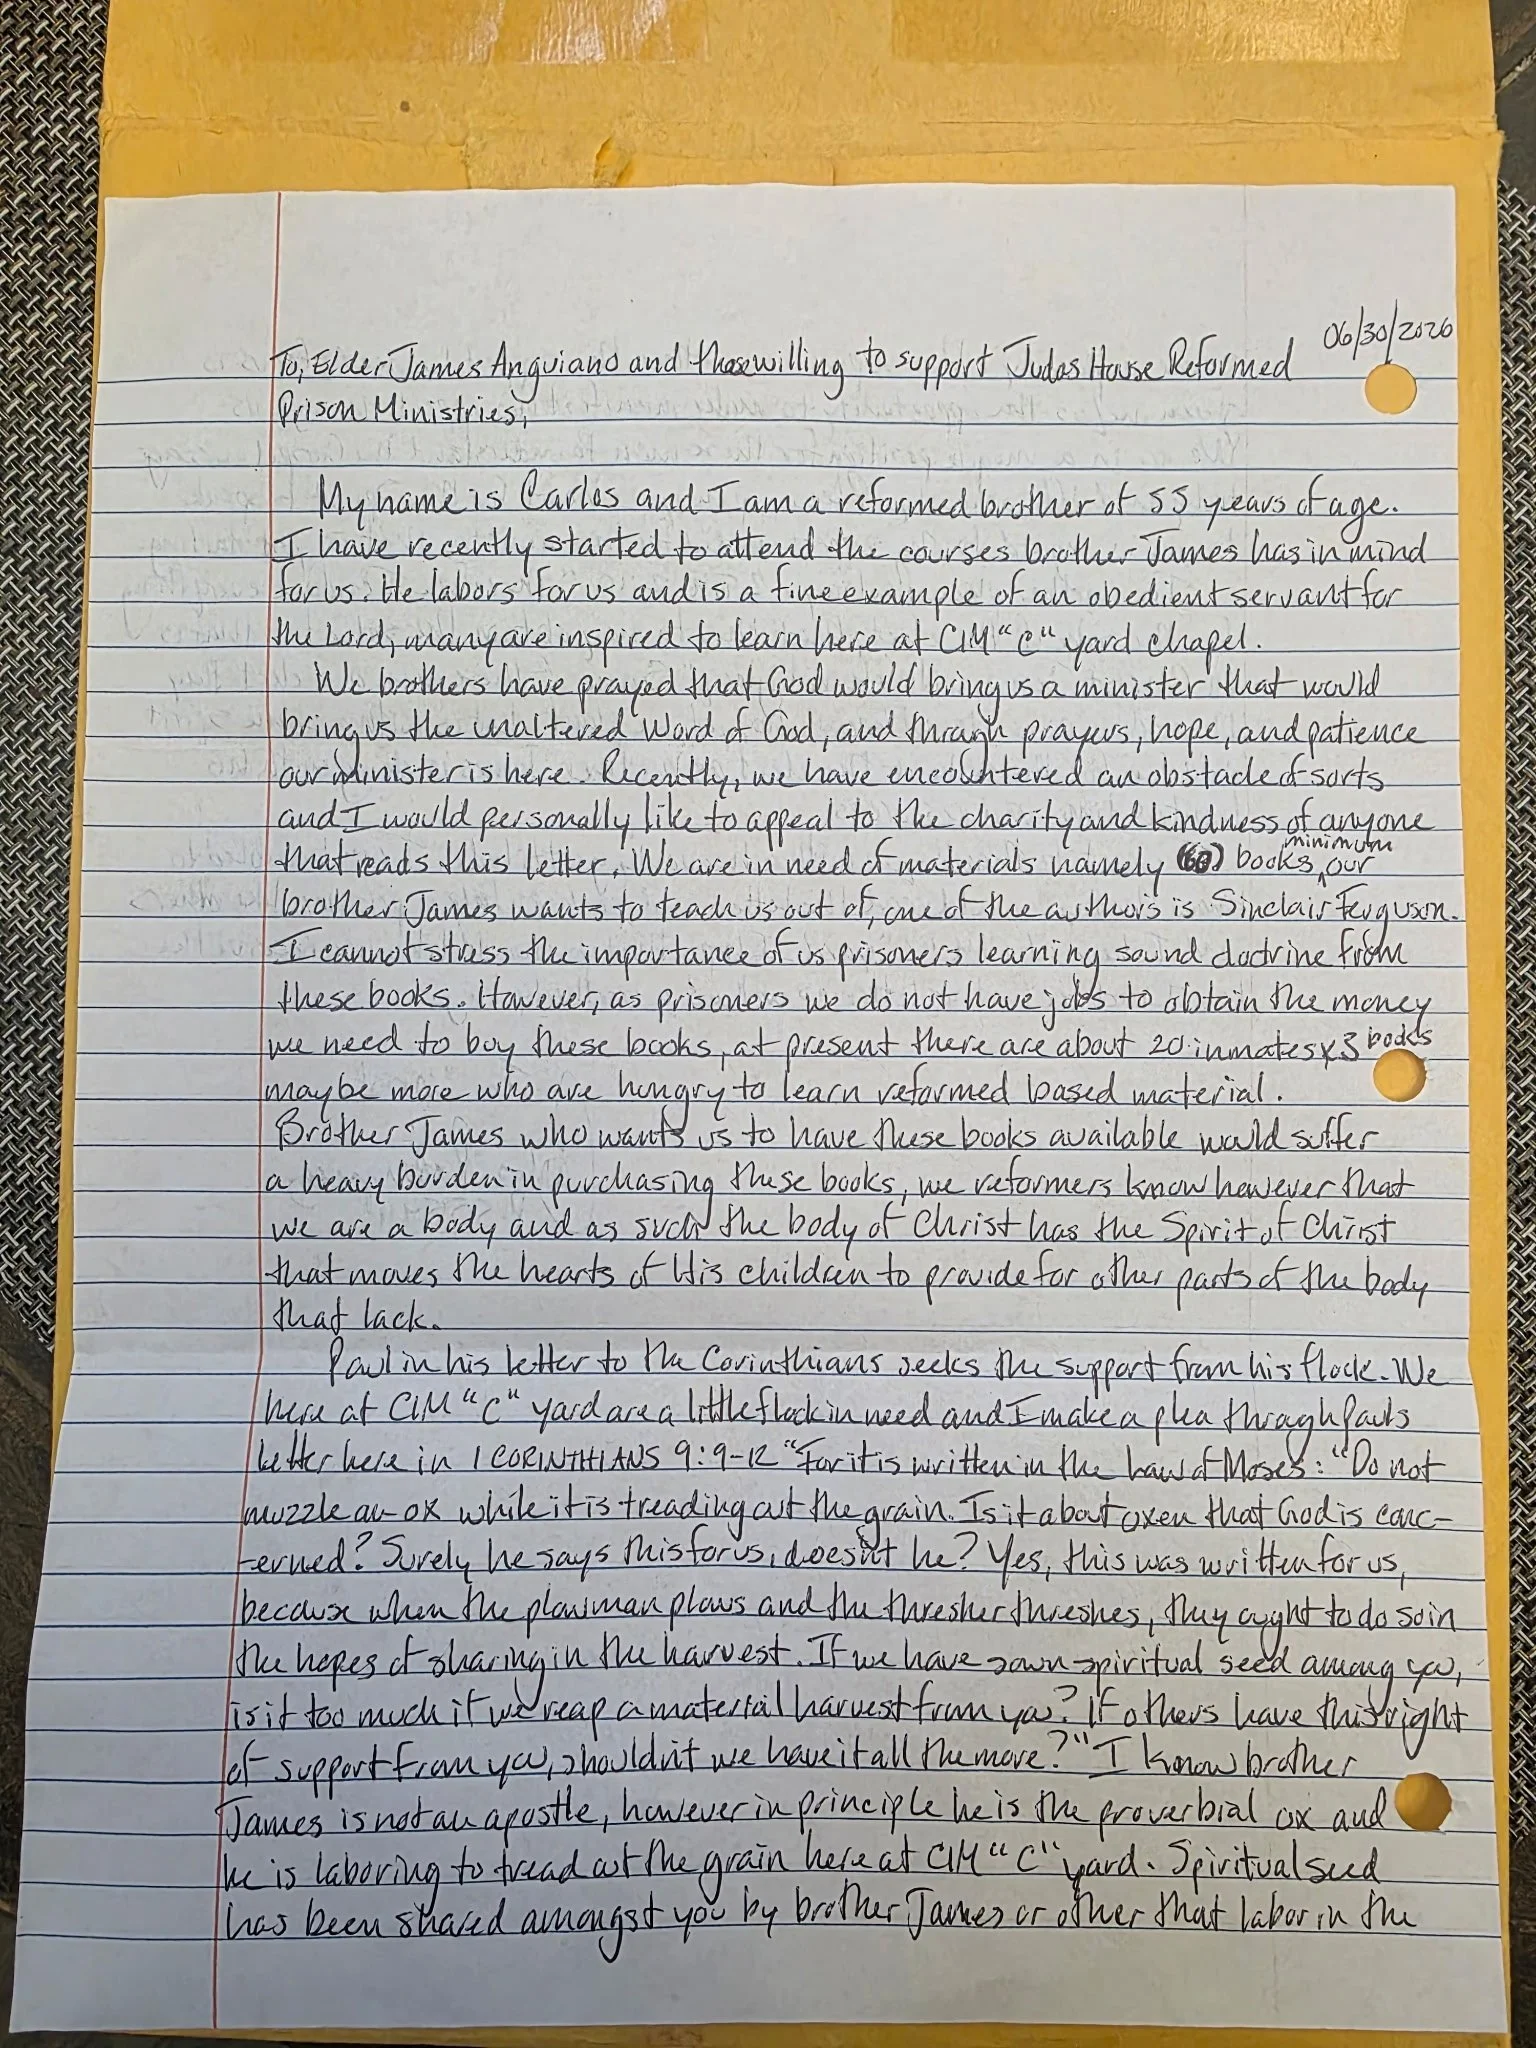 06/30/2026
To, Elder James Anguiano and those willing to support Judas House Reformed
Prison Ministries,
My name is Carlos and I am a reformed brother of 55 years of age.
I have recently started to attend the courses brother James has in mind
for us. He labors for us and is a fine example of an obedient servant for
the Lord, many are inspired to learn here at CIM "C" yard chapel.
We brothers have prayed that God would bring us a minister that would
bring us the unaltered Word of God, and through prayers, hope, and patience
our minister is here. Recently, we have encountered an obstacle of sorts
and I would personally like to appeal to the charity and kindness of anyone
that reads this letter. We are in need of materials namely (60) books, minimum our
brother James wants to teach us out of, one of the authors is Sinclair Ferguson.
I cannot stress the importance of us prisoners learning sound doctrine from
these books. However, as prisoners we do not have jobs to obtain the money
we need to buy these books, at present there are about 20 inmates x 3 books
maybe more who are hungry to learn reformed based material.
Brother James who wants us to have these books available would suffer
a heavy burden in purchasing these books, we reformers know however that
we are a body and as such the body of Christ has the Spirit of Christ
that moves the hearts of His children to provide for other parts of the body
that lack.
Paul in his letter to the Corinthians seeks the support from his flock. We
here at CIM "C" yard are a little flock in need and I make a plea through Pauls
letter here in 1 CORINTHIANS 9:9-12 "For it is written in the Law of Moses: "Do not
muzzle an ox while it is treading out the grain. Is it about oxen that God is conc-
-erned? Surely he says this for us, doesn't he? Yes, this was written for us,
because when the plowman plows and the thresher threshes, they ought to do so in
the hopes of sharing in the harvest. If we have sown spiritual seed among you,
is it too much if we reap a material harvest from you? If others have this right
of support from you, shouldn't we have it all the more?" I know brother
James is not an apostle, however in principle he is the proverbial ox and
he is laboring to tread out the grain here at CIM "C" yard. Spiritual seed
has been shared amongst you by brother James or other that labor in the